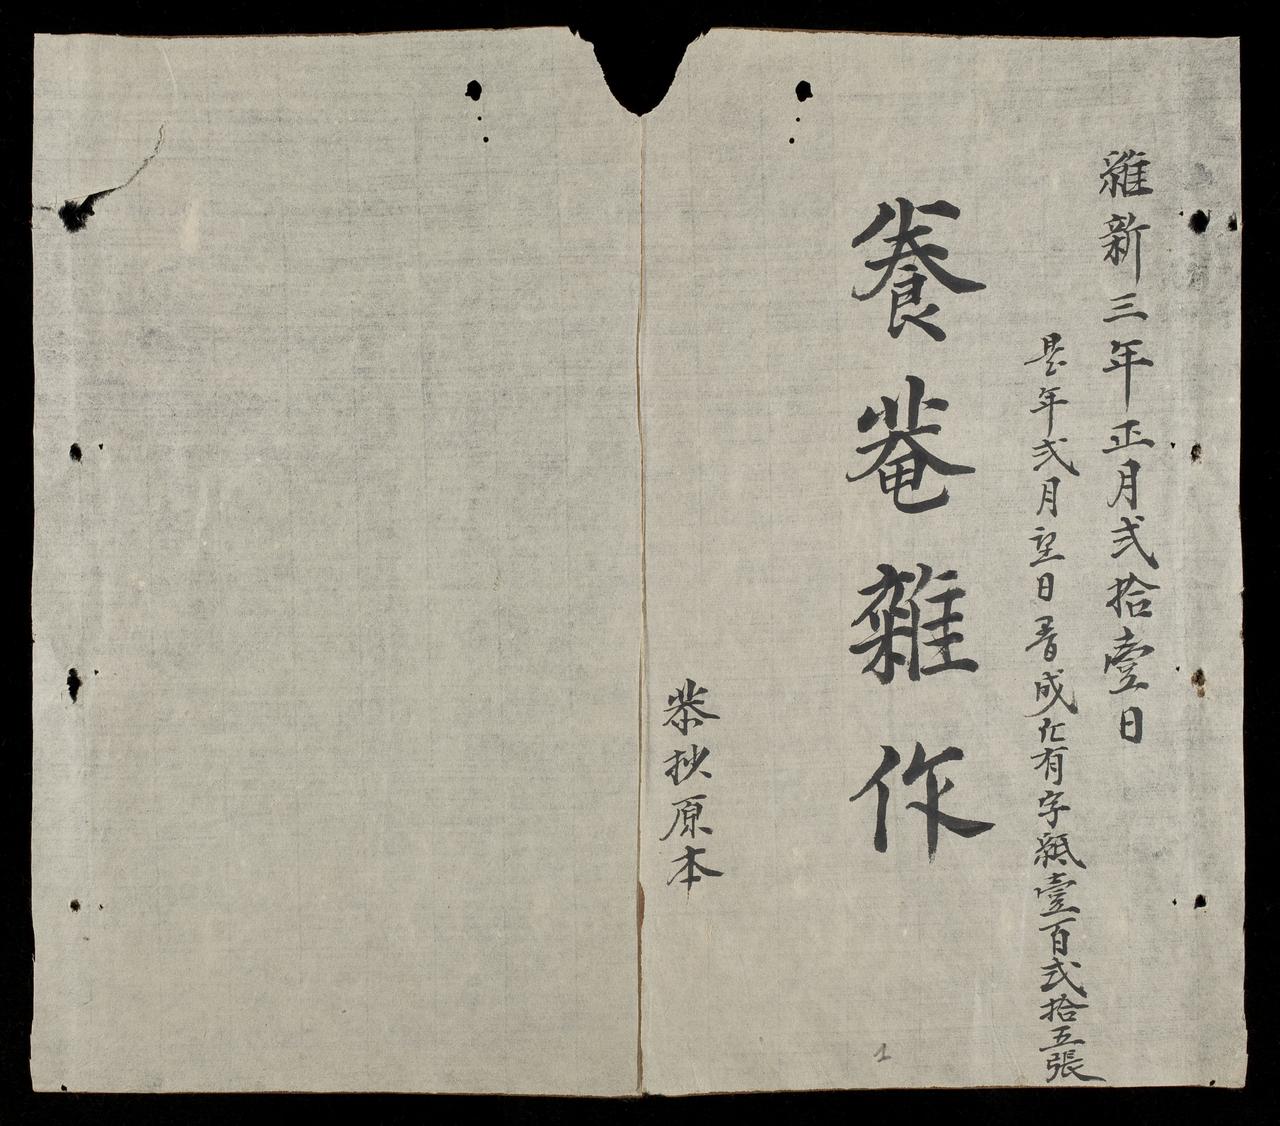 維新三年正月弍拾壹日
是年弍月望日書成凡有字紙壹百弍拾五張
養菴雜作
恭抄原本
1